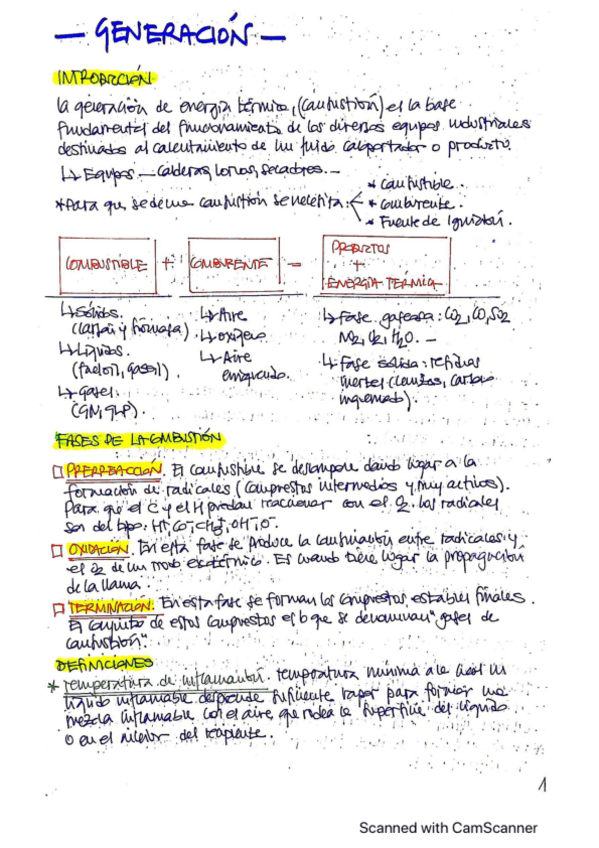 — GENERACIÓN —
INTRODUCCIÓN
La generación de energía térmica, (combustión) es la base
fundamental del funcionamiento de los diversos equipos industriales
destinados al calentamiento de un fluido caloportador o producto.
↳ Equipos — calderas, hornos, secadores. —
* Combustible.
*Para que se de una combustión se necesita: * Comburente.
* Fuente de Ignición.
COMBUSTIBLE + COMBURENTE = PRODUCTOS + ENERGÍA TÉRMICA
↳ Sólidos.
(carbón y biomasa)
↳ Líquidos.
(fueloil, gasoil).
↳ Gases.
(GN, GLP).
↳ Aire
↳ oxígeno
↳ Aire
enriquecido.
↳ Fase gaseosa: CO2, CO, SO2
N2, O2, H2O. —
↳ Fase sólida: residuos
inertes (cenizas, carbono
inquemado).
FASES DE LA COMBUSTIÓN
□ PRERREACCIÓN. El combustible se descompone dando lugar a la
formación de radicales (compuestos intermedios y muy activos).
Para que el C y el H puedan reaccionar con el O2. Los radicales
son del tipo:
□ OXIDACIÓN. En esta fase se produce la combinación entre radicales y
el O2 de un modo exotérmico. Es cuando tiene lugar la propagación
de la llama.
□ TERMINACIÓN. En esta fase se forman los compuestos estables finales.
El conjunto de estos compuestos es lo que se denominan "gases de
combustión".
DEFINICIONES
* Temperatura de inflamación. Temperatura mínima a la cual un
líquido inflamable desprende suficiente vapor para formar una
mezcla inflamable con el aire que rodea la superficie del líquido
o en el interior del recipiente.
1
Scanned with CamScanner